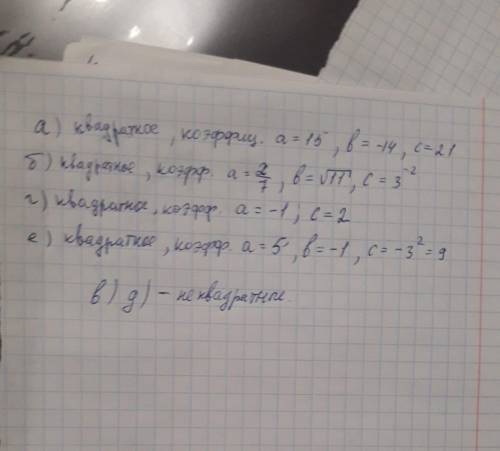 а) квадратное, коэффиц. a = 15, b = -14, c = 21
б) квадратное, коэфф. a = 2/7, b = √11, c = 3⁻²
г) квадратное, коэфф. a = -1, c = 2
е) квадратное, коэфф. a = 5, b = -1, c = -3² = 9
в) д) - не квадратные.